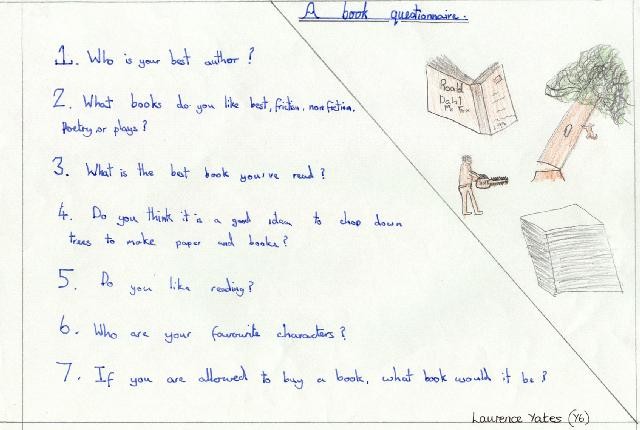 A book questionnaire.
1. Who is your best author?
2. What books do you like best, friction, non fiction,
Poetry or plays?
Roald
Dahl
Mr Fox
3. What is the best book you've read?
4. Do you think it is a good idea to chop down
trees to make paper and books?
5. Do you like reading?
6. Who are your favourite characters?
7. If you are allowed to buy a book, what book would it be?
Laurence Yates (Y6)